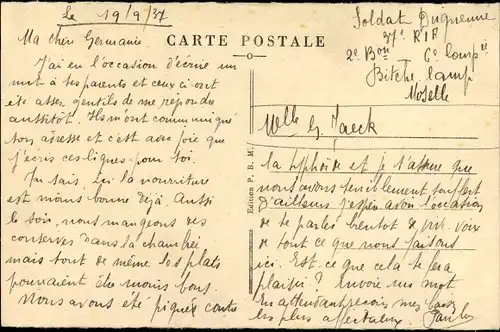 Le 19/9/37
Ma chère Germaine.
CARTE POSTALE
J'ai eu l'occasion d'écrire un
mot à tes parents et ceux ci ont
été assez gentils de me répondre
aussitôt. Ils m'ont communiqué
ton adresse et c'est avec joie que
j'écris ces lignes pour toi.
Tu sais, ici la nourriture
est moins bonne déjà. Aussi
le soir, nous mangeons des
conserves dans la chambrée
mais tout de même les plats
pourraient être moins bons.
Nous avons été piqués contre
Edition P. B. M.
Soldat Duquenne
37e RIF
2e Bon 6e Compie
Bitche Camp
Moselle
Melle G. Jaeck
la typhoïde et je t'assure que
nous avons terriblement souffert
D'ailleurs j'espère avoir l'occasion
de te parler bientôt de vive voix
de tout ce que nous faisons
ici. Est-ce que cela te fera
plaisir? Envoie moi un mot
En attendant reçois mes
les plus affectueux.